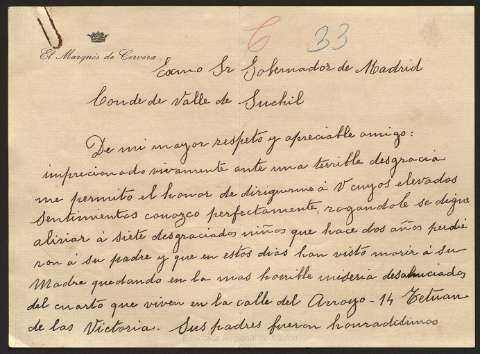 C 33
El Marqués de Cervera
Excmo Sr Gobernador de Madrid
Conde de Valle de Suchil
De mi mayor respeto y apreciable amigo:
imprecionado vivamente ante una terrible desgracia
me permito el honor de dirigirme á V cuyos elevados
sentimientos conozco perfectamente, rogandole se digne
aliviar á siete desgraciados niños que hace dos años perdie
ron á su padre y que en estos dias han visto morir á su
Madre quedando en la mas horrible miseria desahuciados
del cuarto que viven en la calle del Arroyo - 14 Tetuan
de las Victoria. Sus padres fueron honradisimos